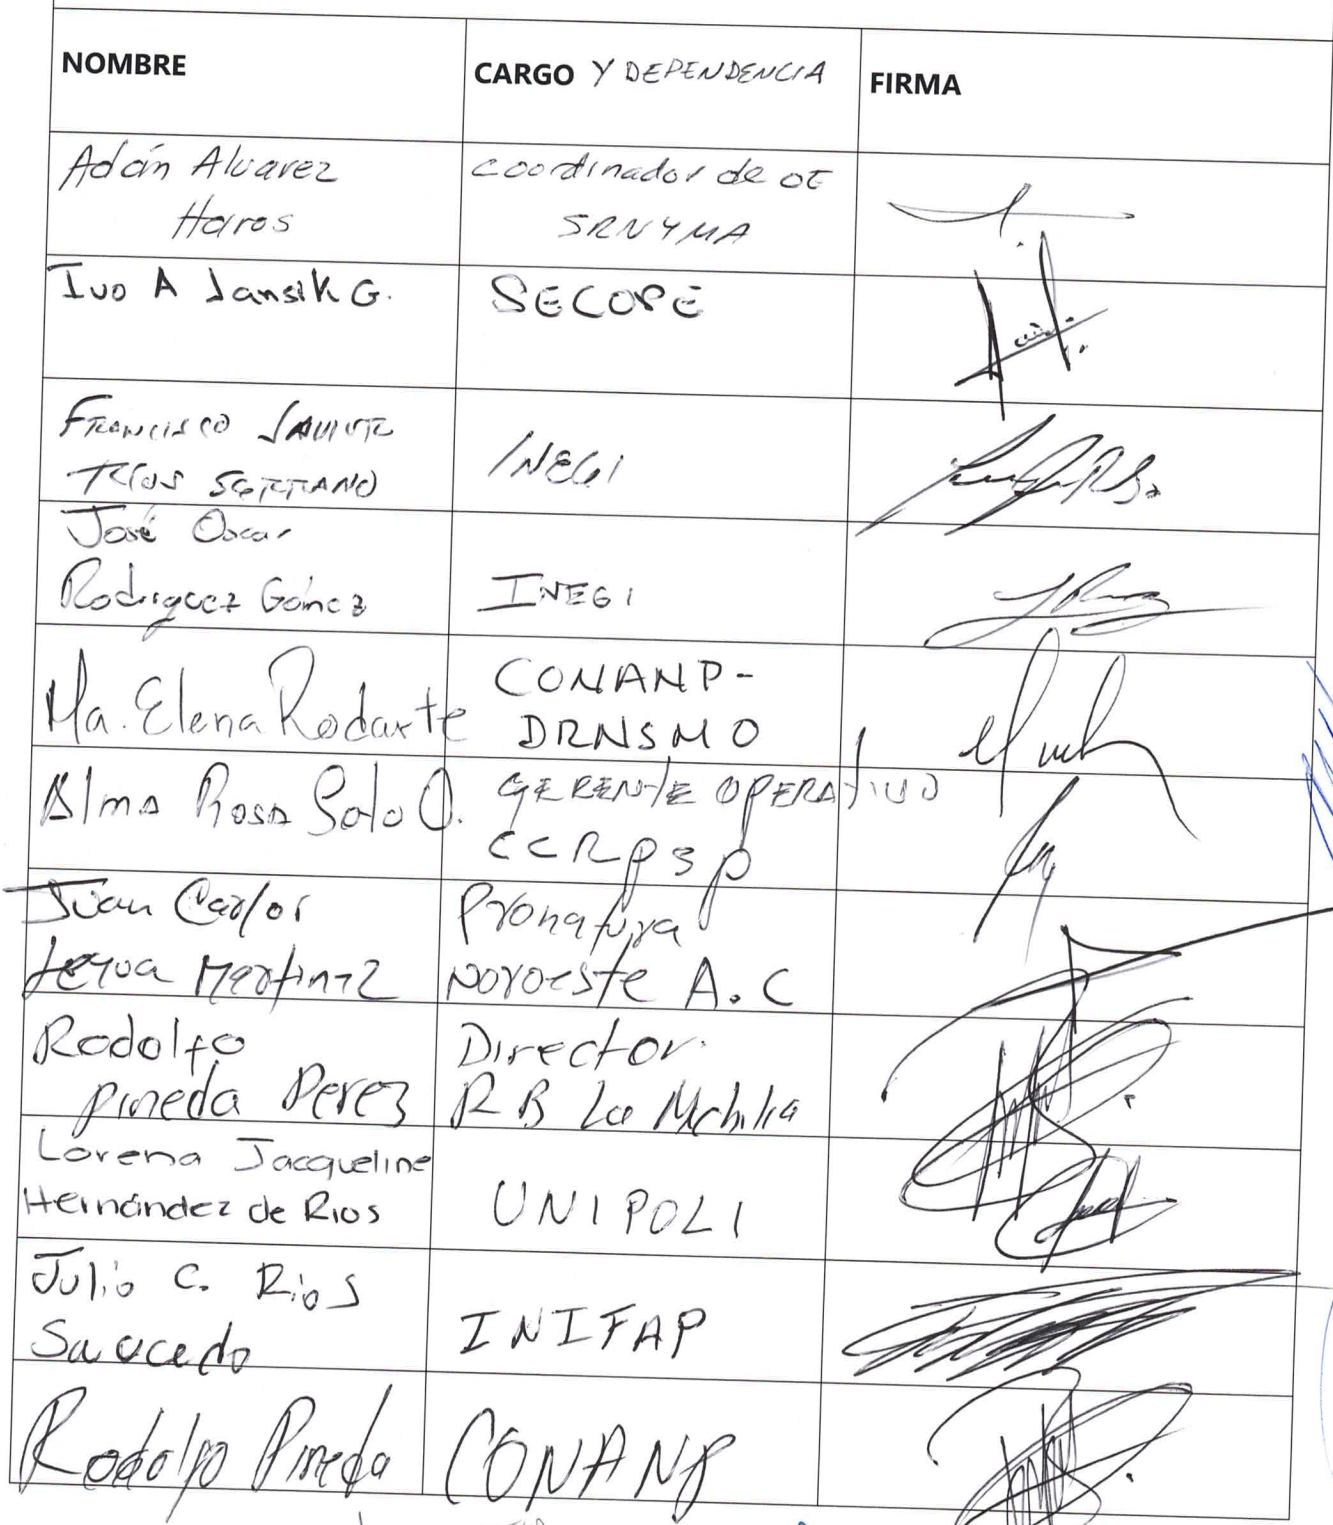 NOMBRE
CARGO Y DEPENDENCIA
FIRMA
Adán Alvarez
Haros
coordinador de OE
SRNYMA
Ivo A Jansik G.
SECOPE
Francisco Javier
Ríos Serrano
INEGI
José Oscar
Rodriguez Gómez
INEGI
Ma. Elena Rodarte
CONANP-
DRNSMO
Alma Rosa Soto O.
GERENTE OPERATIVO
CCRPSP
Juan Carlos
Leyva Martinez
Pronatura
Noroeste A.C
Rodolfo
Pineda Perez
Director
RB La Michilia
Lorena Jacqueline
Hernández de Rios
UNIPOLI
Julio C. Rios
Saucedo
INIFAP
Rodolfo Pineda
CONANP